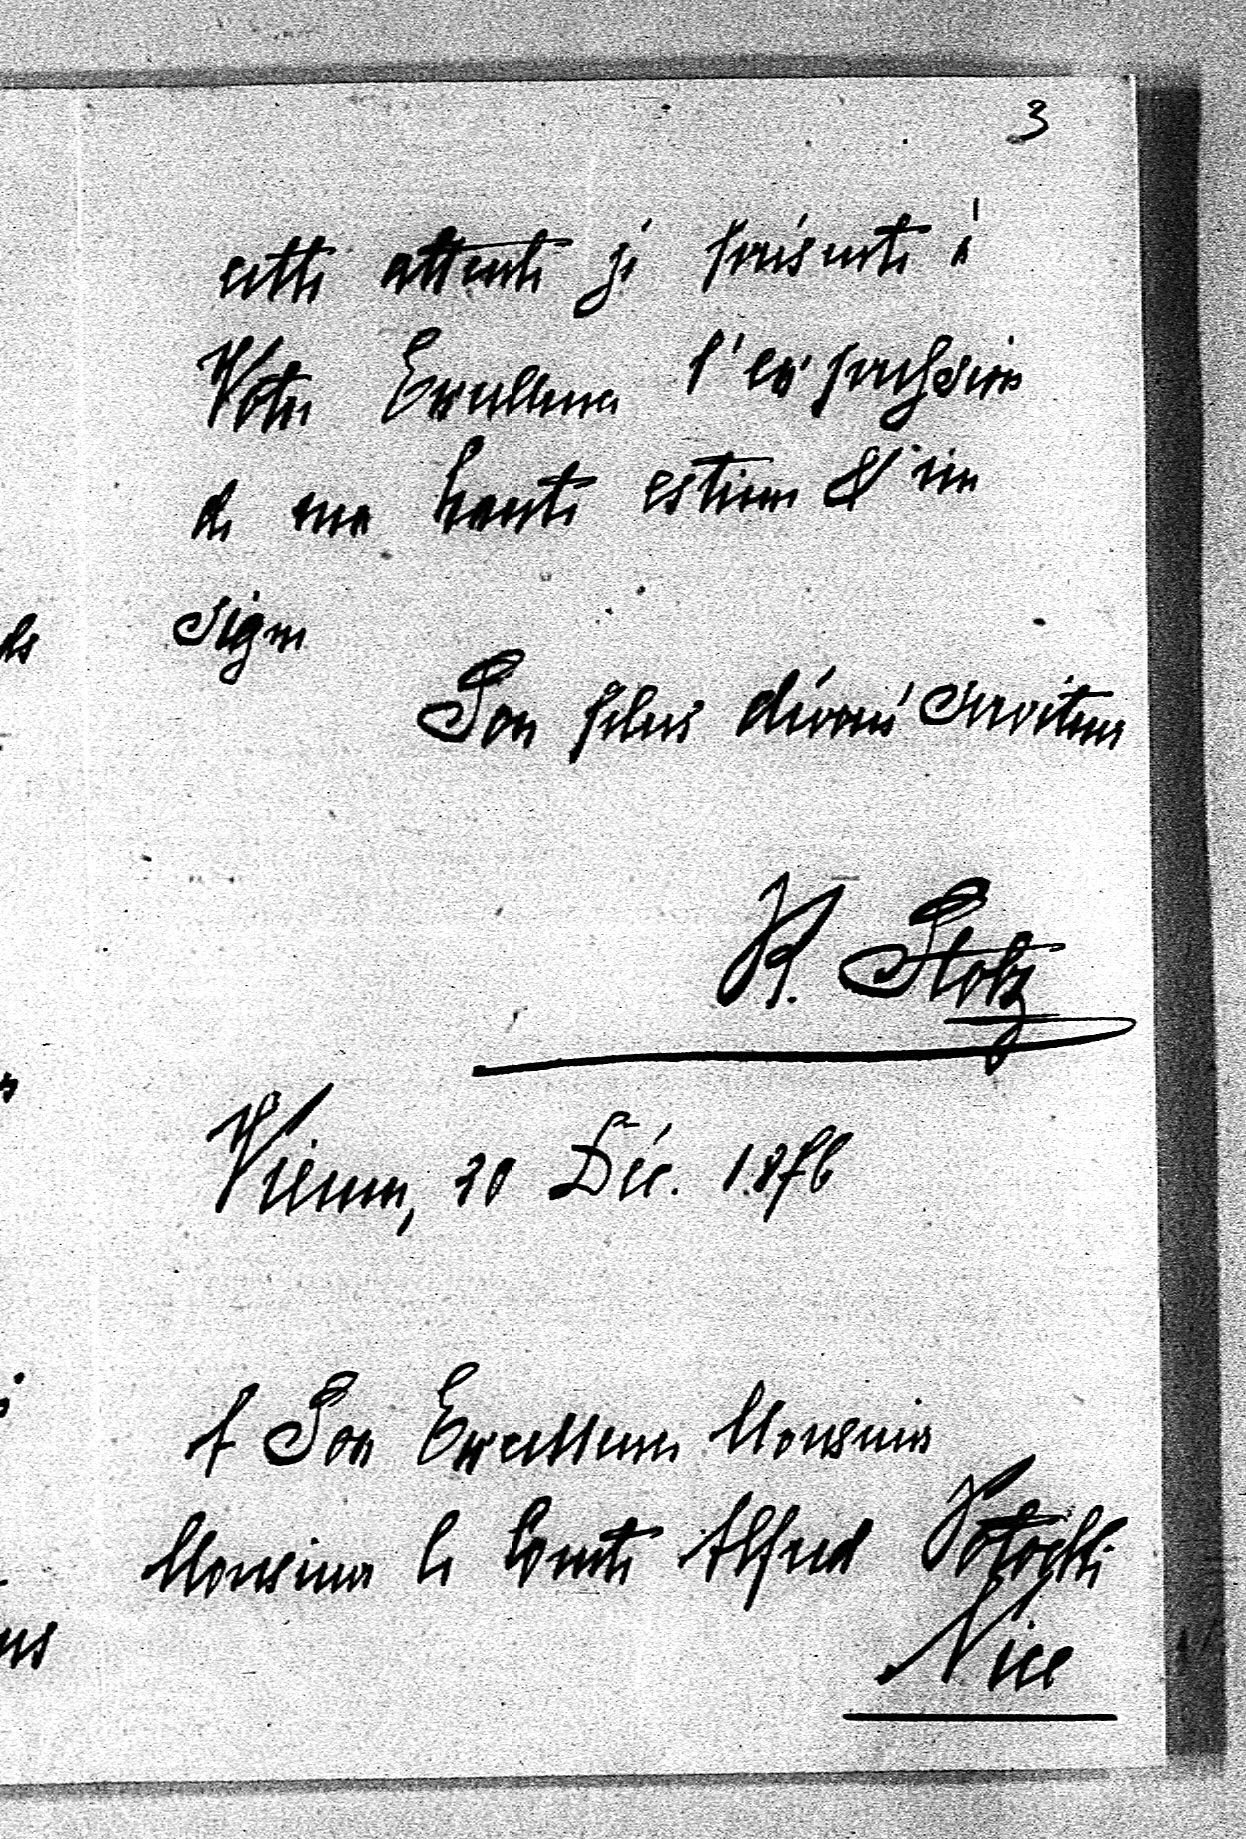 3
cette attente je présente à
Votre Excellence l'expression
de ma haute estime & me
signe
Son plus dévoué serviteur
K. Stolz
Vienne, 20 Déc. 1876
A Son Excellence Monsieur
Monsieur le Comte Alfred Potocki
Nice